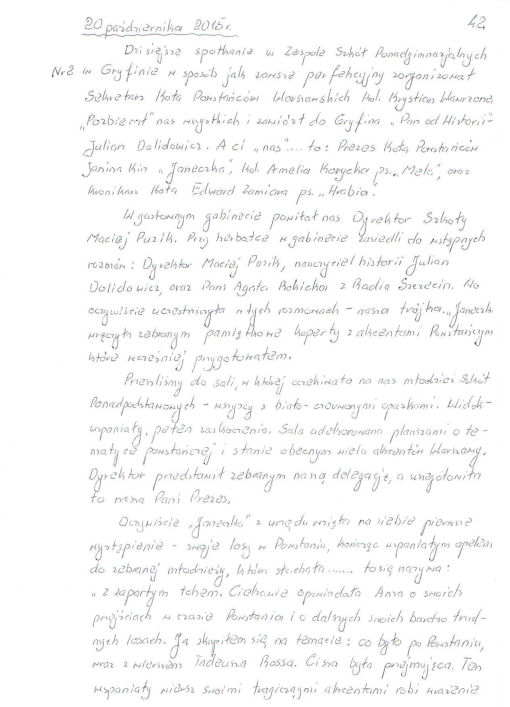 20 października 2015r. 42
Dzisiejsze spotkanie w Zespole Szkół Ponadgimnazjalnych
Nr2 w Gryfinie w sposób jak zawsze perfekcyjny zorganizował
Sekretarz Koła Powstańców Warszawskich kol. Krystian Wawrzone
"Pozbierał" nas wszystkich i zawiózł do Gryfina "Pan od Historii"
Julian Dolidowicz. A ci "nas".... to: Prezes Koła Powstańców
Janina Kin "Janeczka", kol. Amelia ps. "Mela", oraz
kronikarz Koła Edward Zamiara ps. "Hrabia".
W gustownym gabinecie powitał nas Dyrektor Szkoły
Maciej Puzik. Przy herbatce w gabinecie zasiedli do wstępnych
rozmów: Dyrektor Maciej Puzik, nauczyciel historii Julian
Dolidowicz, oraz Pani Agata Rokicka z Radia Szczecin. No
oczywiście uczestniczyła w tych rozmowach - nasza trójka. "Janeczk
wręczyła zebranym pamiątkowe koperty z akcentami Powstańczym
które wcześniej przygotowałem.
Przeszliśmy do sali, w której oczekiwała na nas młodzież Szkół
Ponadpodstawowych - wszyscy z biało-czerwonymi opaskami. Widok
wspaniały, pełen zaskoczenia. Sala udekorowana planszami o te-
matyce powstańczej i stanie obecnym wielu akcentów Warszawy.
Dyrektor przedstawił zebranym naszą delegację, a
to nasza Pani Prezes.
Oczywiście "Janeczka" z urzędu wzięła na siebie pierwsze
wystąpienie - swoje losy w Powstaniu, kończąc wspaniałym apelem
do zebranej młodzieży, która słuchała...... to się nazywa:
"z zapartym tchem. Ciekawie opowiadała Anna o swoich
przejściach w czasie Powstania i o dalszych swoich bardzo trud-
nych losach. Ja skupiłem się na temacie: co było po Powstaniu,
wraz z wierszem Tadeusza Rossa. Cisza była przejmująca. Ten
wspaniały wiersz swoimi tragicznymi akcentami robi wrażenie